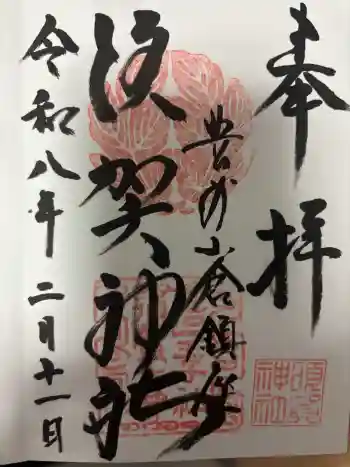 奉拝
豊州小倉鎮座
須賀神社
令和八年二月十一日
須賀神社